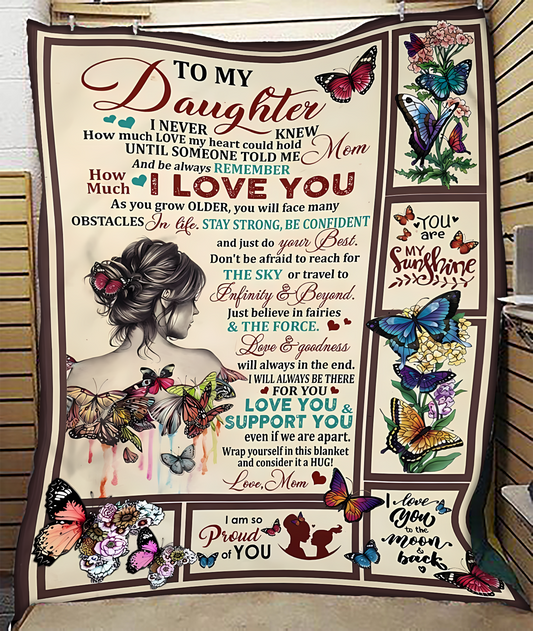 TO MY
Daughter
I NEVER KNEW
How much LOVE my heart could hold
UNTIL SOMEONE TOLD ME Mom
And be always REMEMBER
How Much I LOVE YOU
As you grow OLDER, you will face many
OBSTACLES In life. STAY STRONG, BE CONFIDENT
and just do your Best.
Don't be afraid to reach for
THE SKY or travel to
Infinity & Beyond.
Just believe in fairies
& THE FORCE.
Love & goodness
will always in the end.
I WILL ALWAYS BE THERE
FOR YOU
LOVE YOU &
SUPPORT YOU
even if we are apart.
Wrap yourself in this blanket
and consider it a HUG!
Love, Mom
YOU
are
MY
Sunshine
I am so
Proud
of YOU
I love
You
to the
moon
&
back